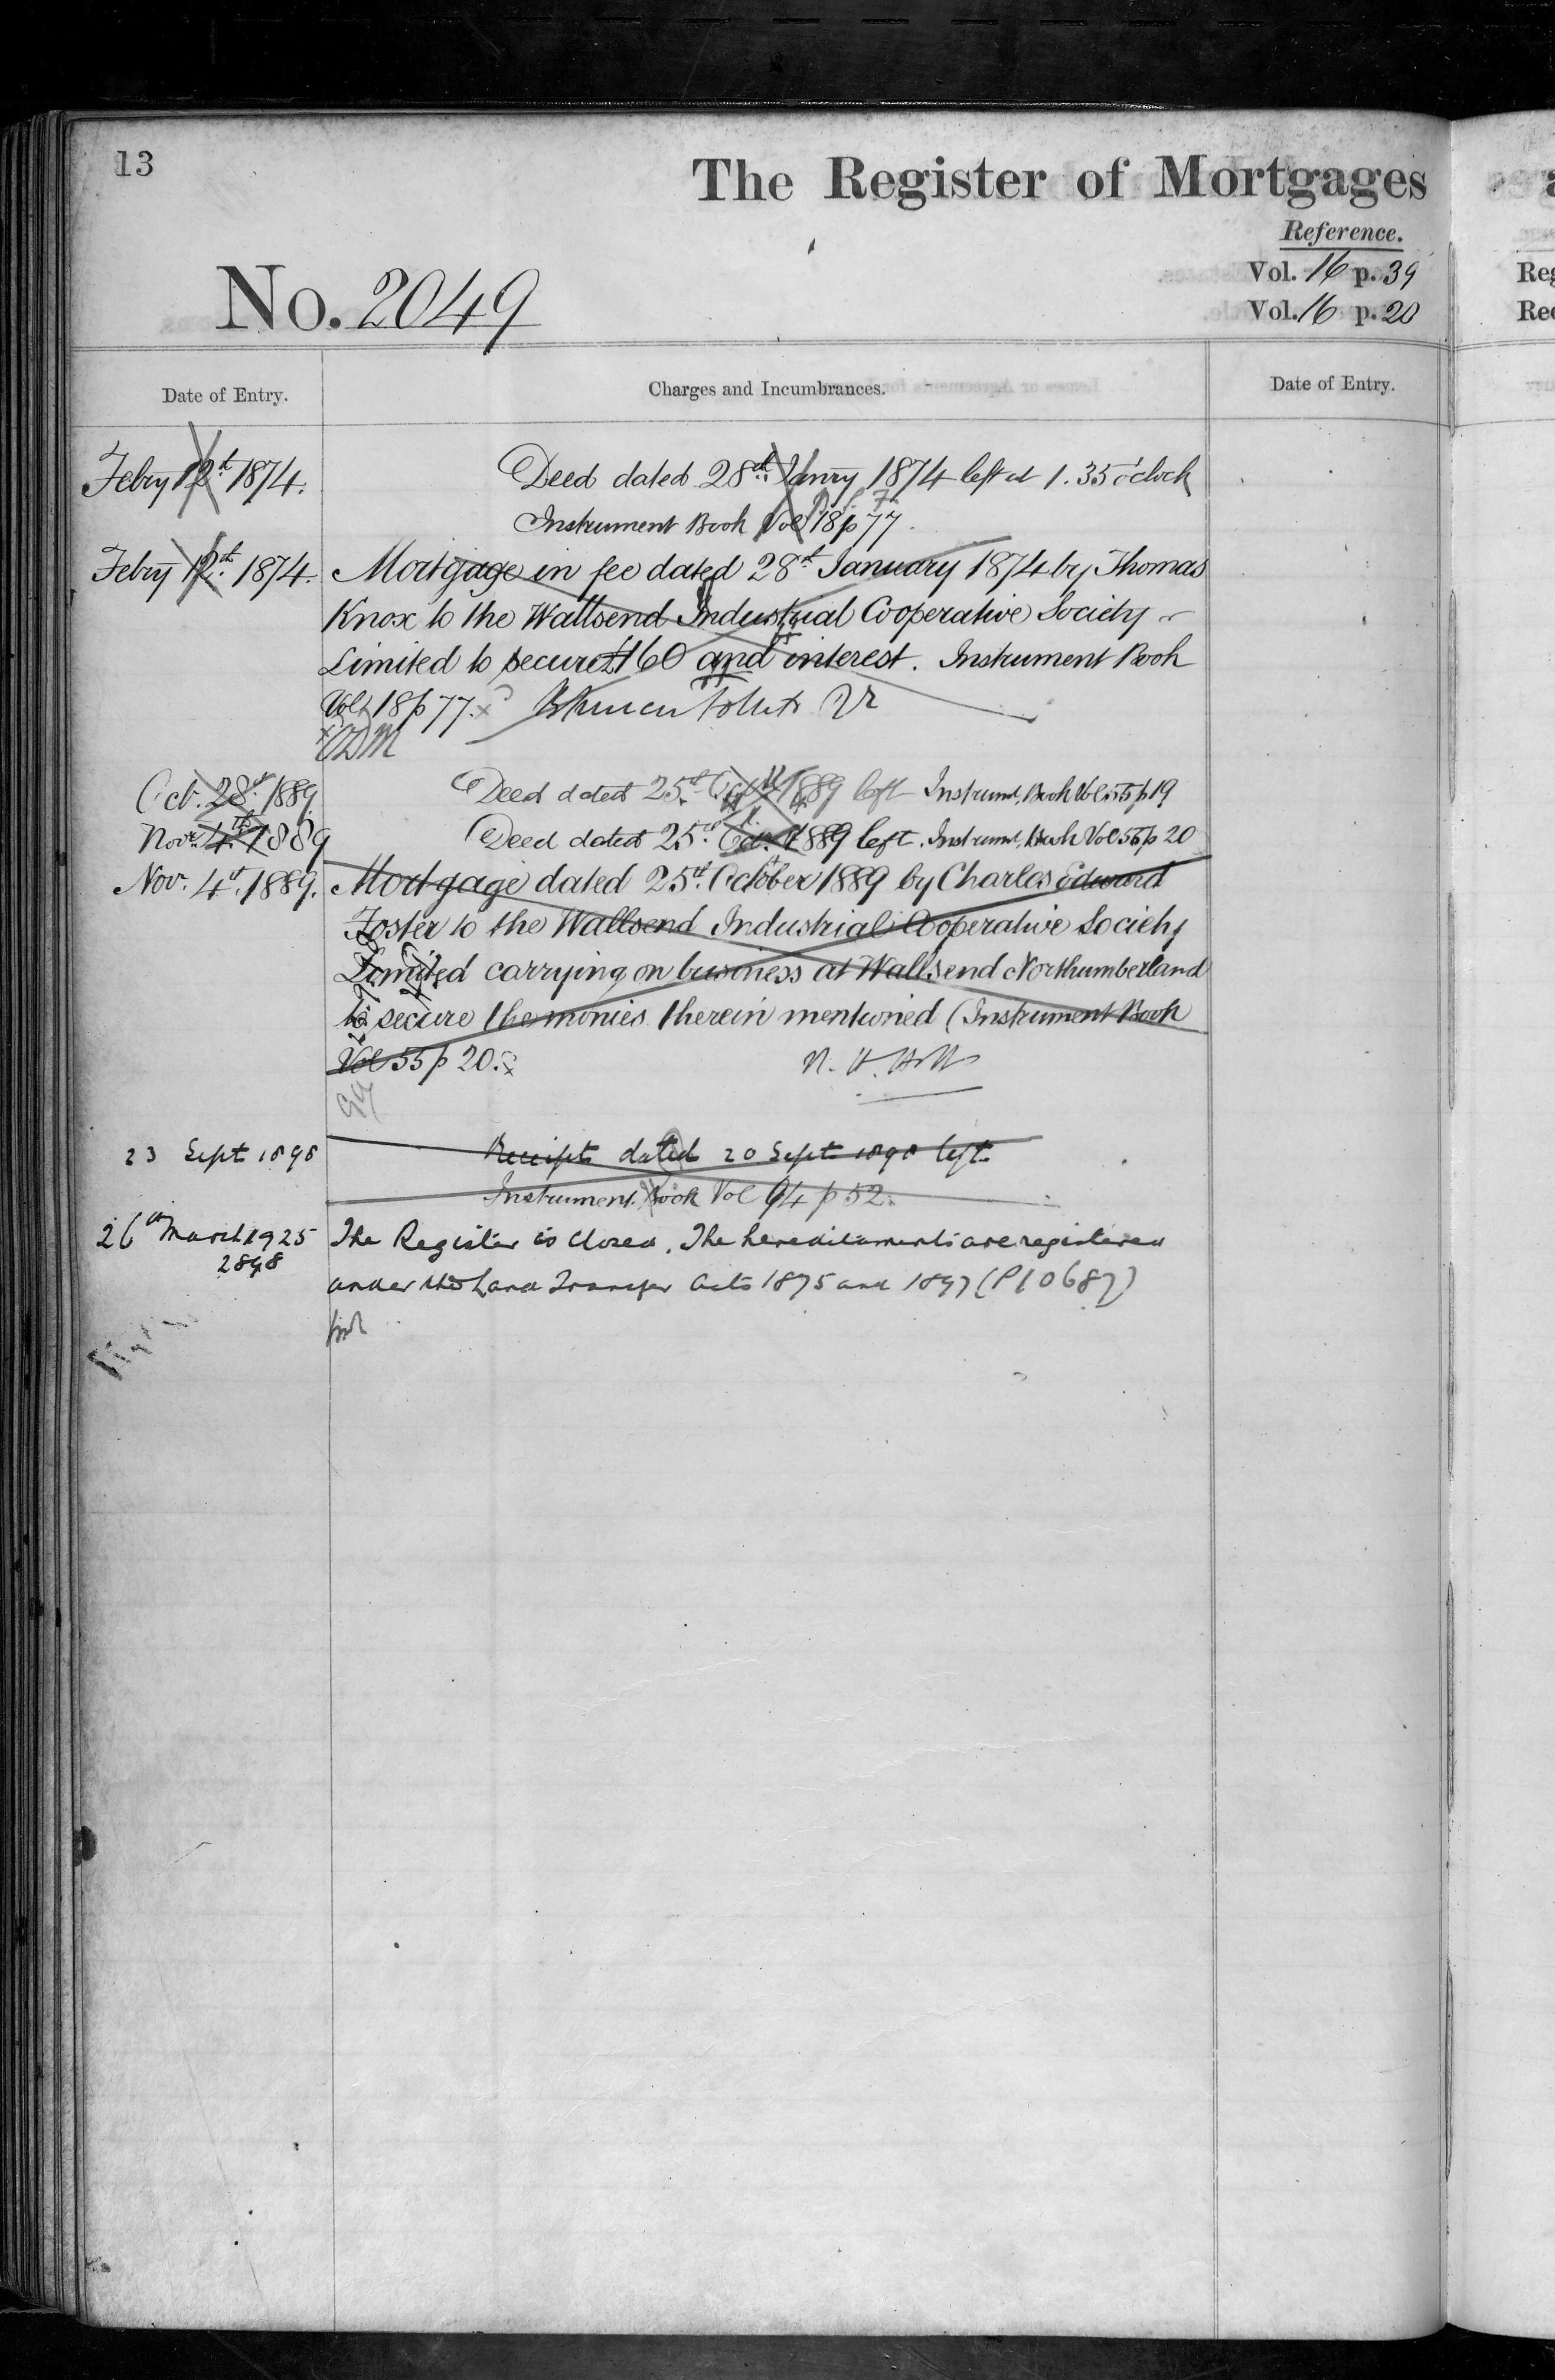 13
The Register of Mortgages
Reference.
Vol. 16 p. 39
No. 2049
Vol. 16 p. 20
Date of Entry.
Charges and Incumbrances.
Date of Entry.
Febry 12th 1874.
Deed dated 28th Janry 1874 left at 1.35 o'clock
Instrument Book Vol 18 p 77.
Febry 12th 1874.
Mortgage in fee dated 28th January 1874 by Thomas
Knox to the Wallsend Industrial Cooperative Society
Limited to secure £160 and interest. Instrument Book
Vol 18 p 77.
Oct. 28th 1889
Deed dated 25th Oct 1889 left Instrumt. Book Vol 55 p 19
Novr. 4th 1889
Deed dated 25th Oct. 1889 left. Instrumt. Book Vol 55 p 20
Nov. 4th 1889.
Mortgage dated 25th October 1889 by Charles Edward
Foster to the Wallsend Industrial Cooperative Society
Limited carrying on business at Wallsend Northumberland
to secure the monies therein mentioned (Instrument Book
Vol 55 p 20.
23 Sept 1898
Receipt dated 20 Sept 1898 left
Instrument Book Vol 94 p 52.
26th March 1925
The Register is closed. The hereditaments are registered
2898
under the Land Transfer Acts 1875 and 1897 (P10687)
Reg
Rec